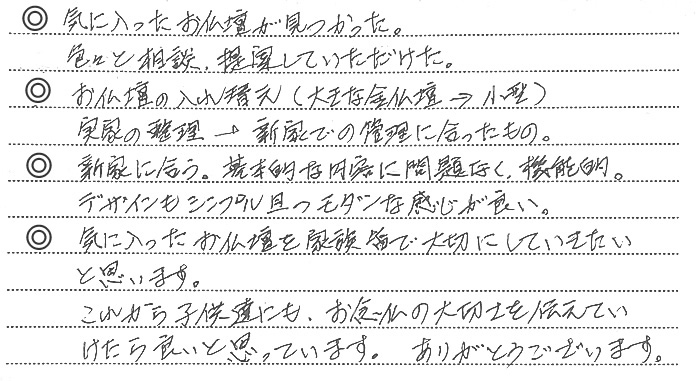 ◎ 気に入ったお仏壇が見つかった。
色々と相談、提案していただけた。
◎ お仏壇の入れ替え（大きな金仏壇→小型）
実家の整理→新家での管理に合ったもの。
◎ 新家に合う。基本的な内容に問題なく、機能的。
デザインもシンプル且つモダンな感じが良い。
◎ 気に入ったお仏壇を家族皆で大切にしていきたい
と思います。
これから子供達にも、お念仏の大切さを伝えてい
けたら良いと思っています。 ありがとうございます。